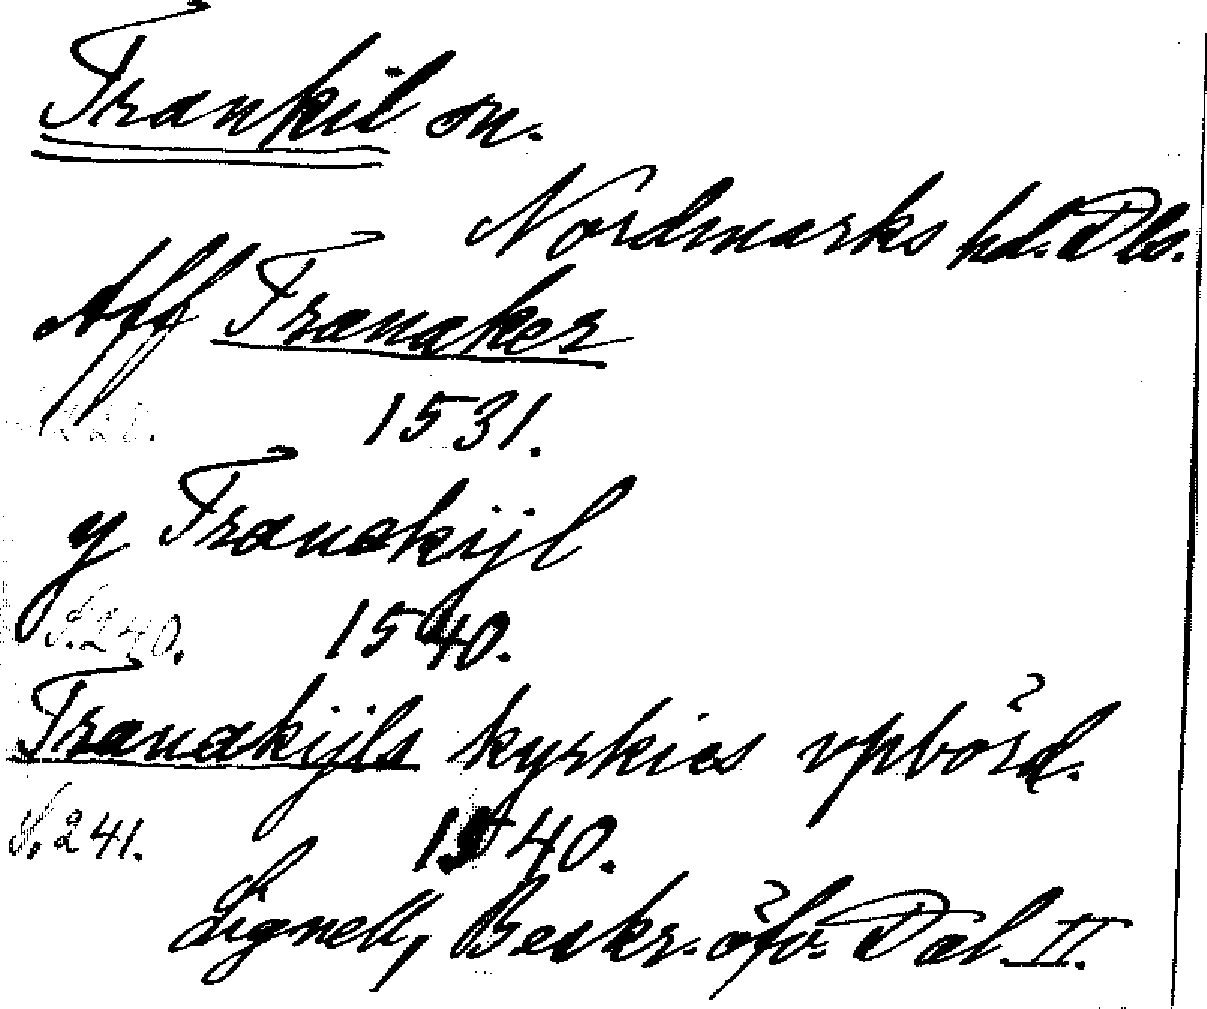 Trankil sn.
Nordmarks hd. Dls.
Aff Tranaker
1531.
y Tranakijl
S. 240. 1540.
Tranakijls kyrkies vpbörd.
S. 241. 1540.
Lignell, Beskr. öfv. Dal. II.